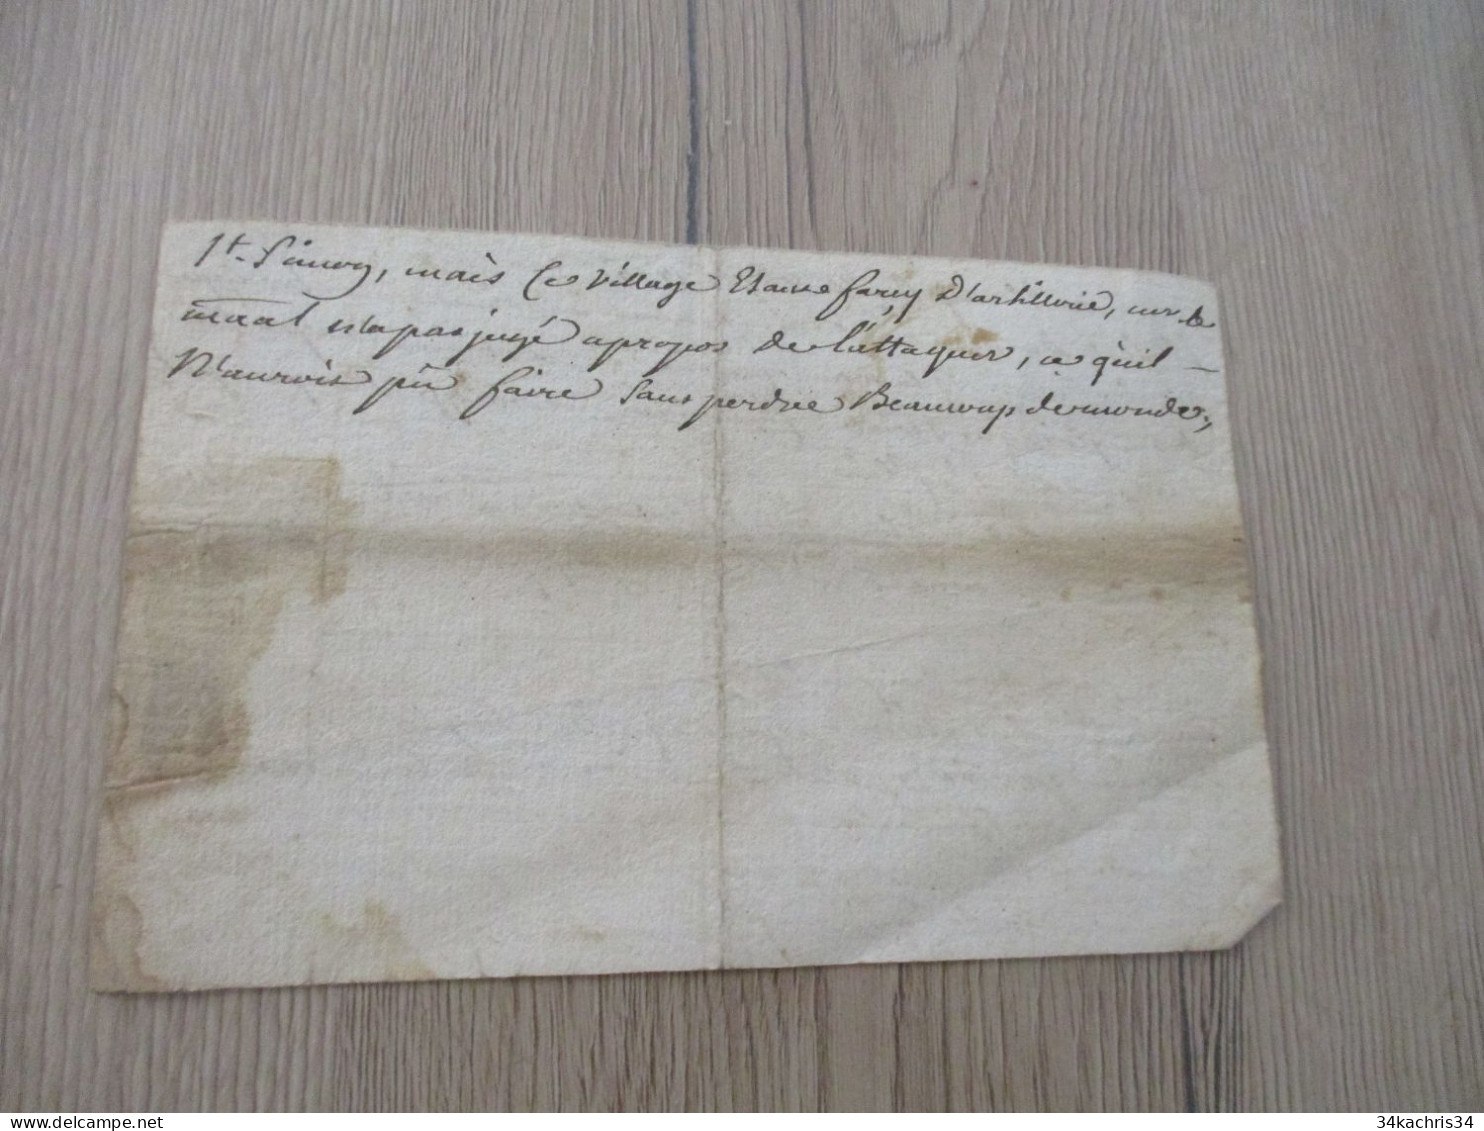 St. Simon, mais Ce village Etans farcy D'artillerie, mr. le
maal n'a pas jugé apropos de l'attaquer, ce qu'il
N'auroit pû faire Sans perdre Beaucoup de monde,
www.delcampe.net
34kachris34